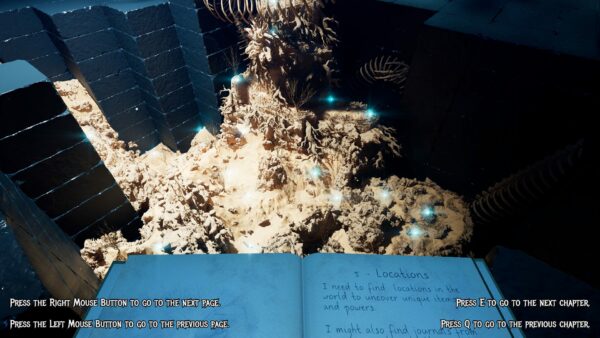 5 - Locations
I need to find locations in the
world to uncover unique
and powers.
I might also find journals from
Press the Right Mouse Button to go to the next page.
Press E to go to the next chapter.
Press the Left Mouse Button to go to the previous page.
Press Q to go to the previous chapter.